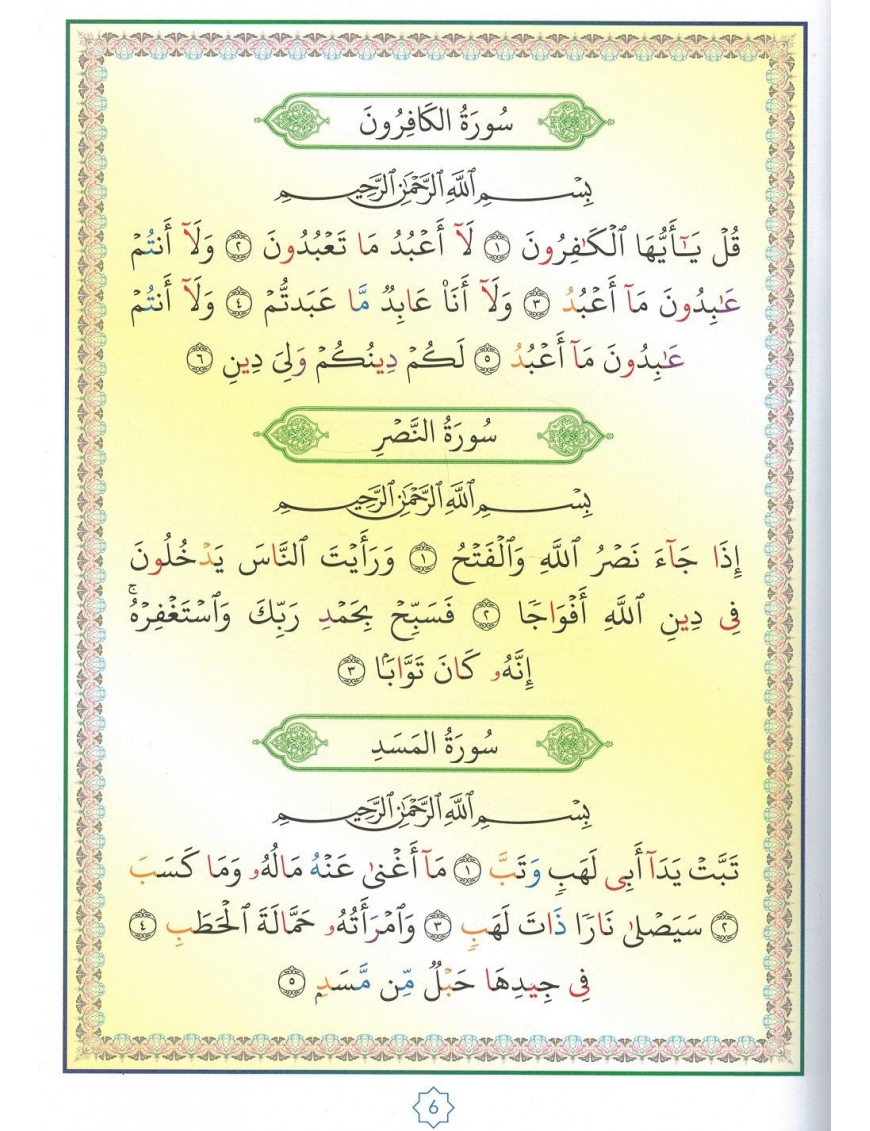 سُورَةُ الكَافِرُونَ
بِسْمِ ٱللَّهِ ٱلرَّحْمَٰنِ ٱلرَّحِيمِ
قُلْ يَٰٓأَيُّهَا ٱلْكَٰفِرُونَ ١ لَآ أَعْبُدُ مَا تَعْبُدُونَ ٢ وَلَآ أَنتُمْ
عَٰبِدُونَ مَآ أَعْبُدُ ٣ وَلَآ أَنَا۠ عَابِدٌ مَّا عَبَدتُّمْ ٤ وَلَآ أَنتُمْ
عَٰبِدُونَ مَآ أَعْبُدُ ٥ لَكُمْ دِينُكُمْ وَلِيَ دِينِ ٦
سُورَةُ النَّصْرِ
بِسْمِ ٱللَّهِ ٱلرَّحْمَٰنِ ٱلرَّحِيمِ
إِذَا جَآءَ نَصْرُ ٱللَّهِ وَٱلْفَتْحُ ١ وَرَأَيْتَ ٱلنَّاسَ يَدْخُلُونَ
فِى دِينِ ٱللَّهِ أَفْوَاجًا ٢ فَسَبِّحْ بِحَمْدِ رَبِّكَ وَٱسْتَغْفِرْهُ ۚ
إِنَّهُۥ كَانَ تَوَّابًۢا ٣
سُورَةُ المَسَدِ
بِسْمِ ٱللَّهِ ٱلرَّحْمَٰنِ ٱلرَّحِيمِ
تَبَّتْ يَدَآ أَبِى لَهَبٍ وَتَبَّ ١ مَآ أَغْنَىٰ عَنْهُ مَالُهُۥ وَمَا كَسَبَ
٢ سَيَصْلَىٰ نَارًا ذَاتَ لَهَبٍ ٣ وَٱمْرَأَتُهُۥ حَمَّالَةَ ٱلْحَطَبِ ٤
فِى جِيدِهَا حَبْلٌ مِّن مَّسَدٍۭ ٥
6